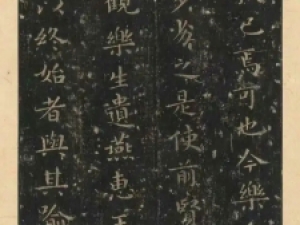 已焉可也今樂
多劣之是使前賢
觀樂生遺燕惠王
以終始者與其喻